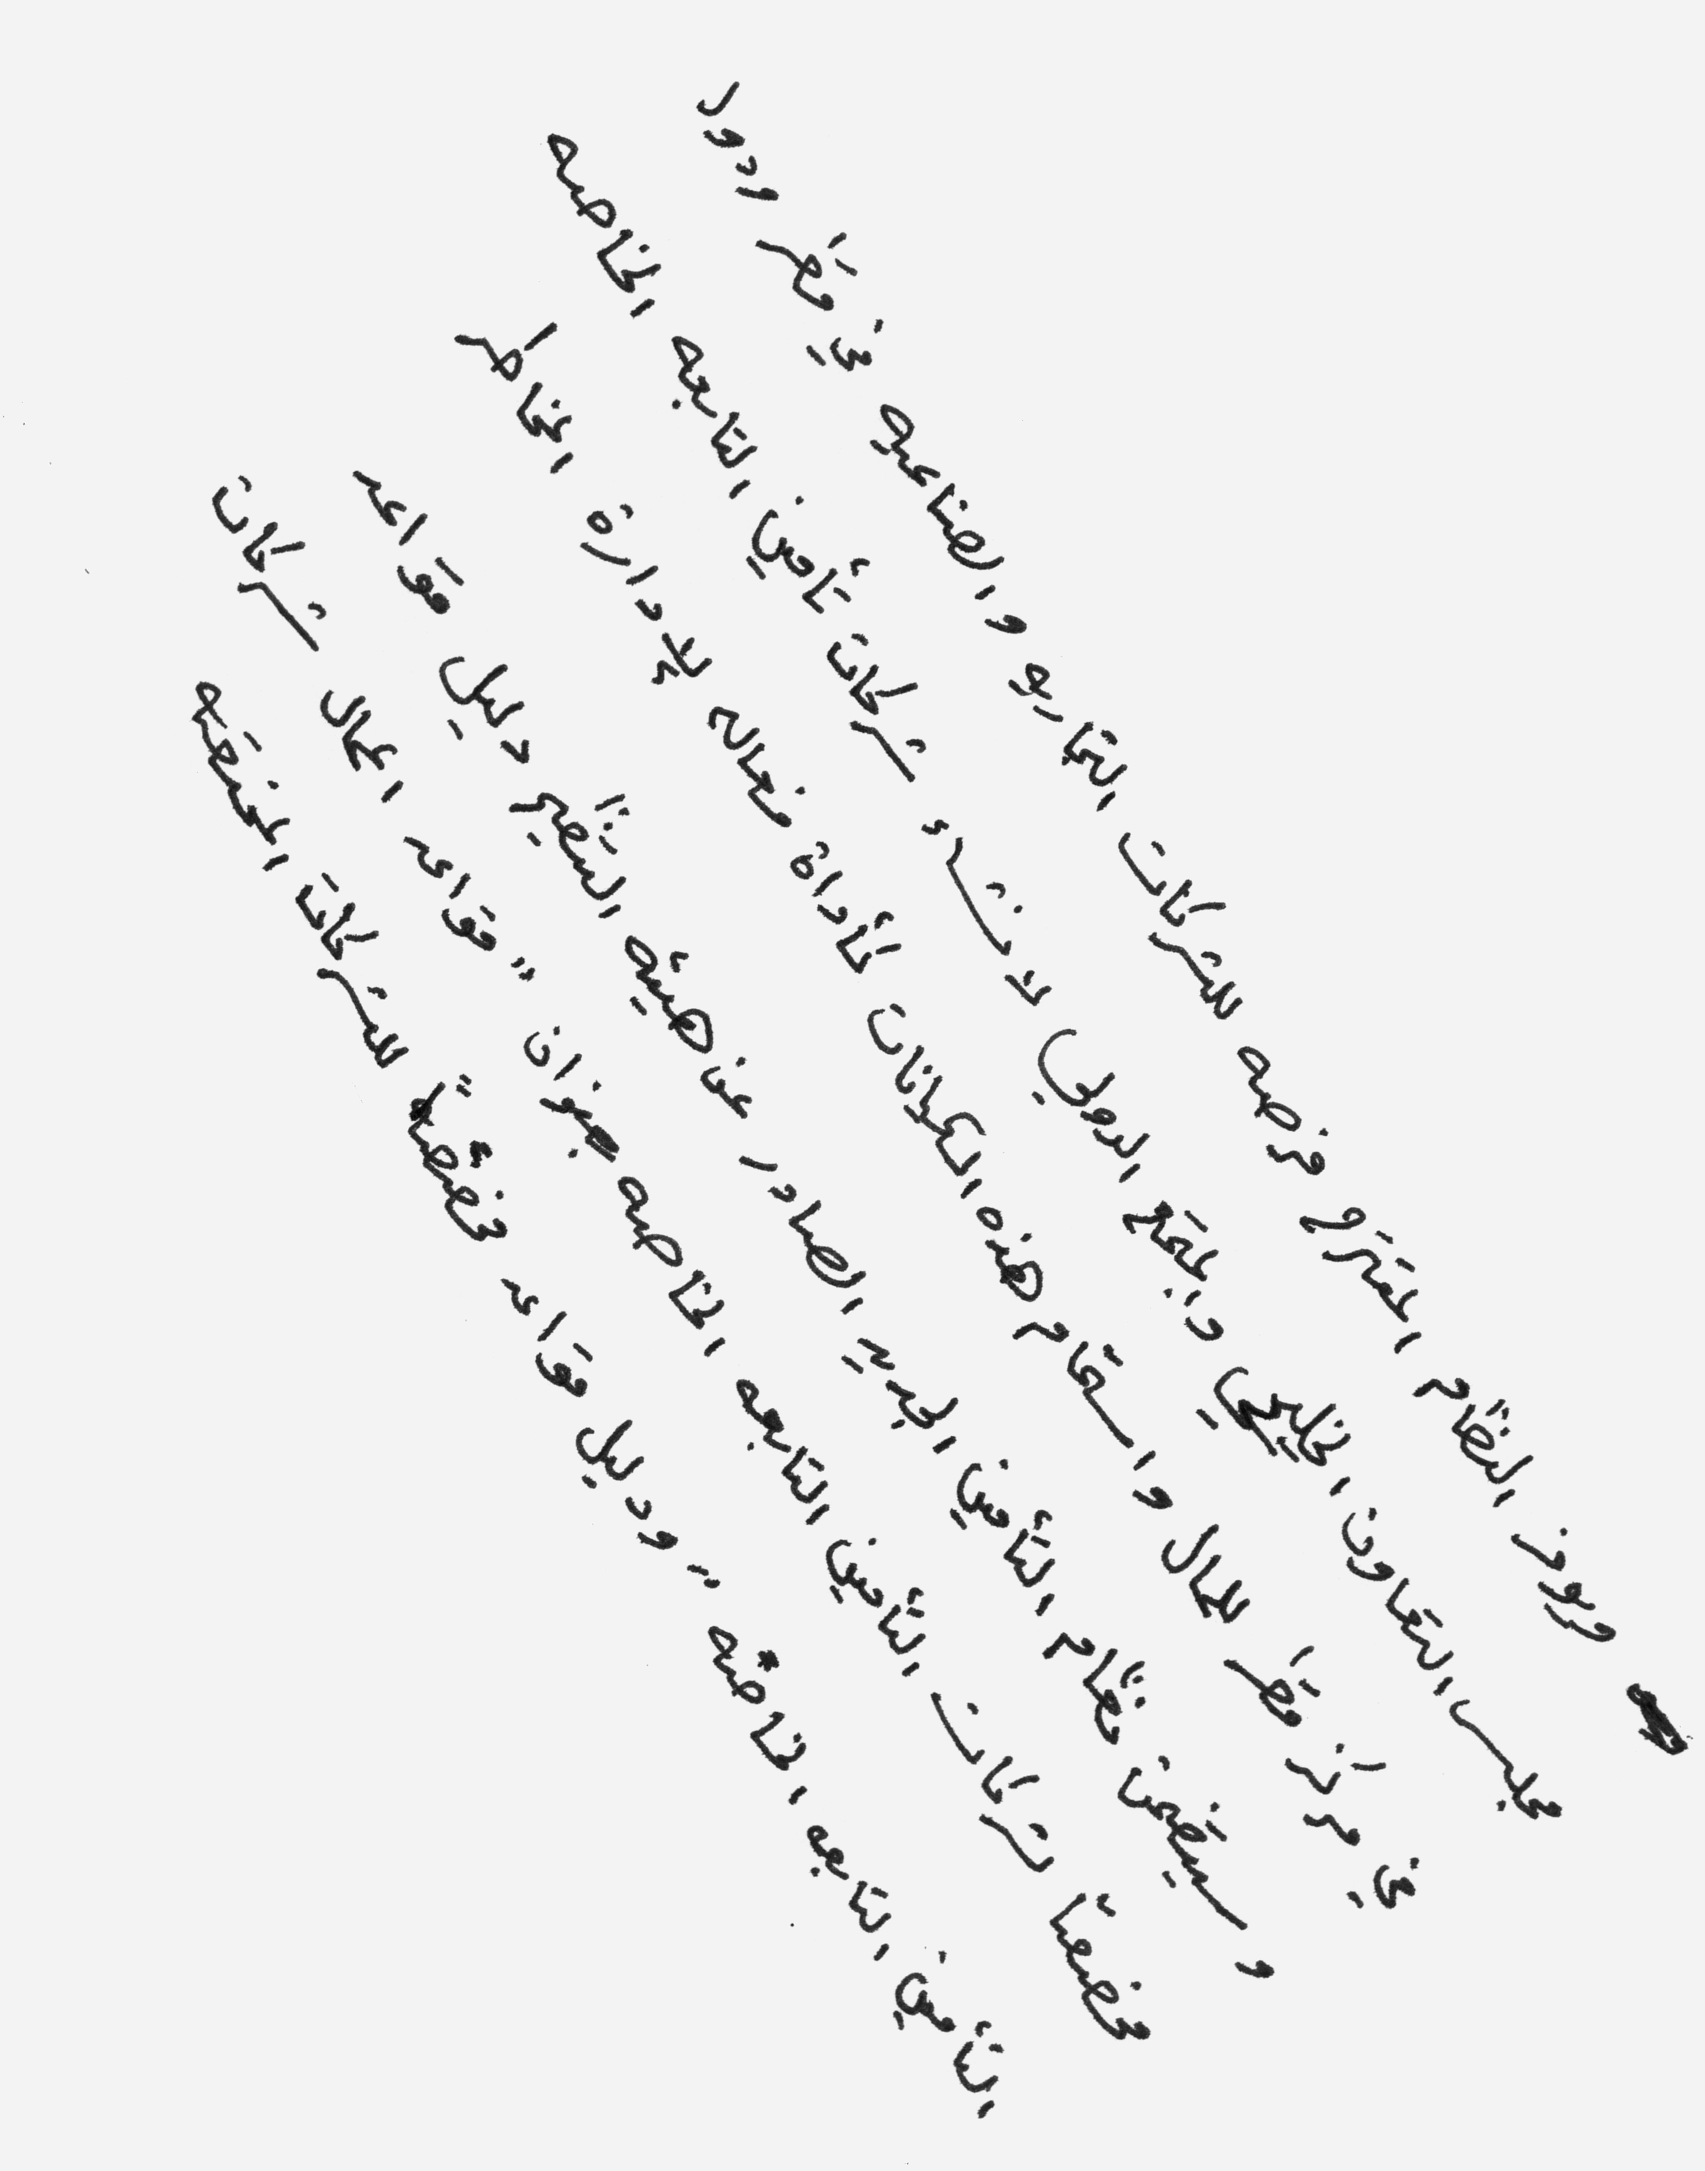 ويوفر النظام المقترح فرصه للشركات التجاريه والصناعيه في قطر ودول
مجلس التعاون الخليجي والمجتمع الدولي لانشاء شركات تأمين التابعه الخاصه
في مركز قطر للمال واستخدام هذه الكيانات كأداة فعاله لإدارة المخاطر
وسيتضمن نظام التأمين الجديد الصادر عن هيئه التنظيم دليل قواعد
مخصصا لشركات التأمين التابعه الخاصه بعنوان " قواعد اعمال شركات
التأمين التابعه الخاصه " ودليل قواعد مخصصة للشركات المنظمة